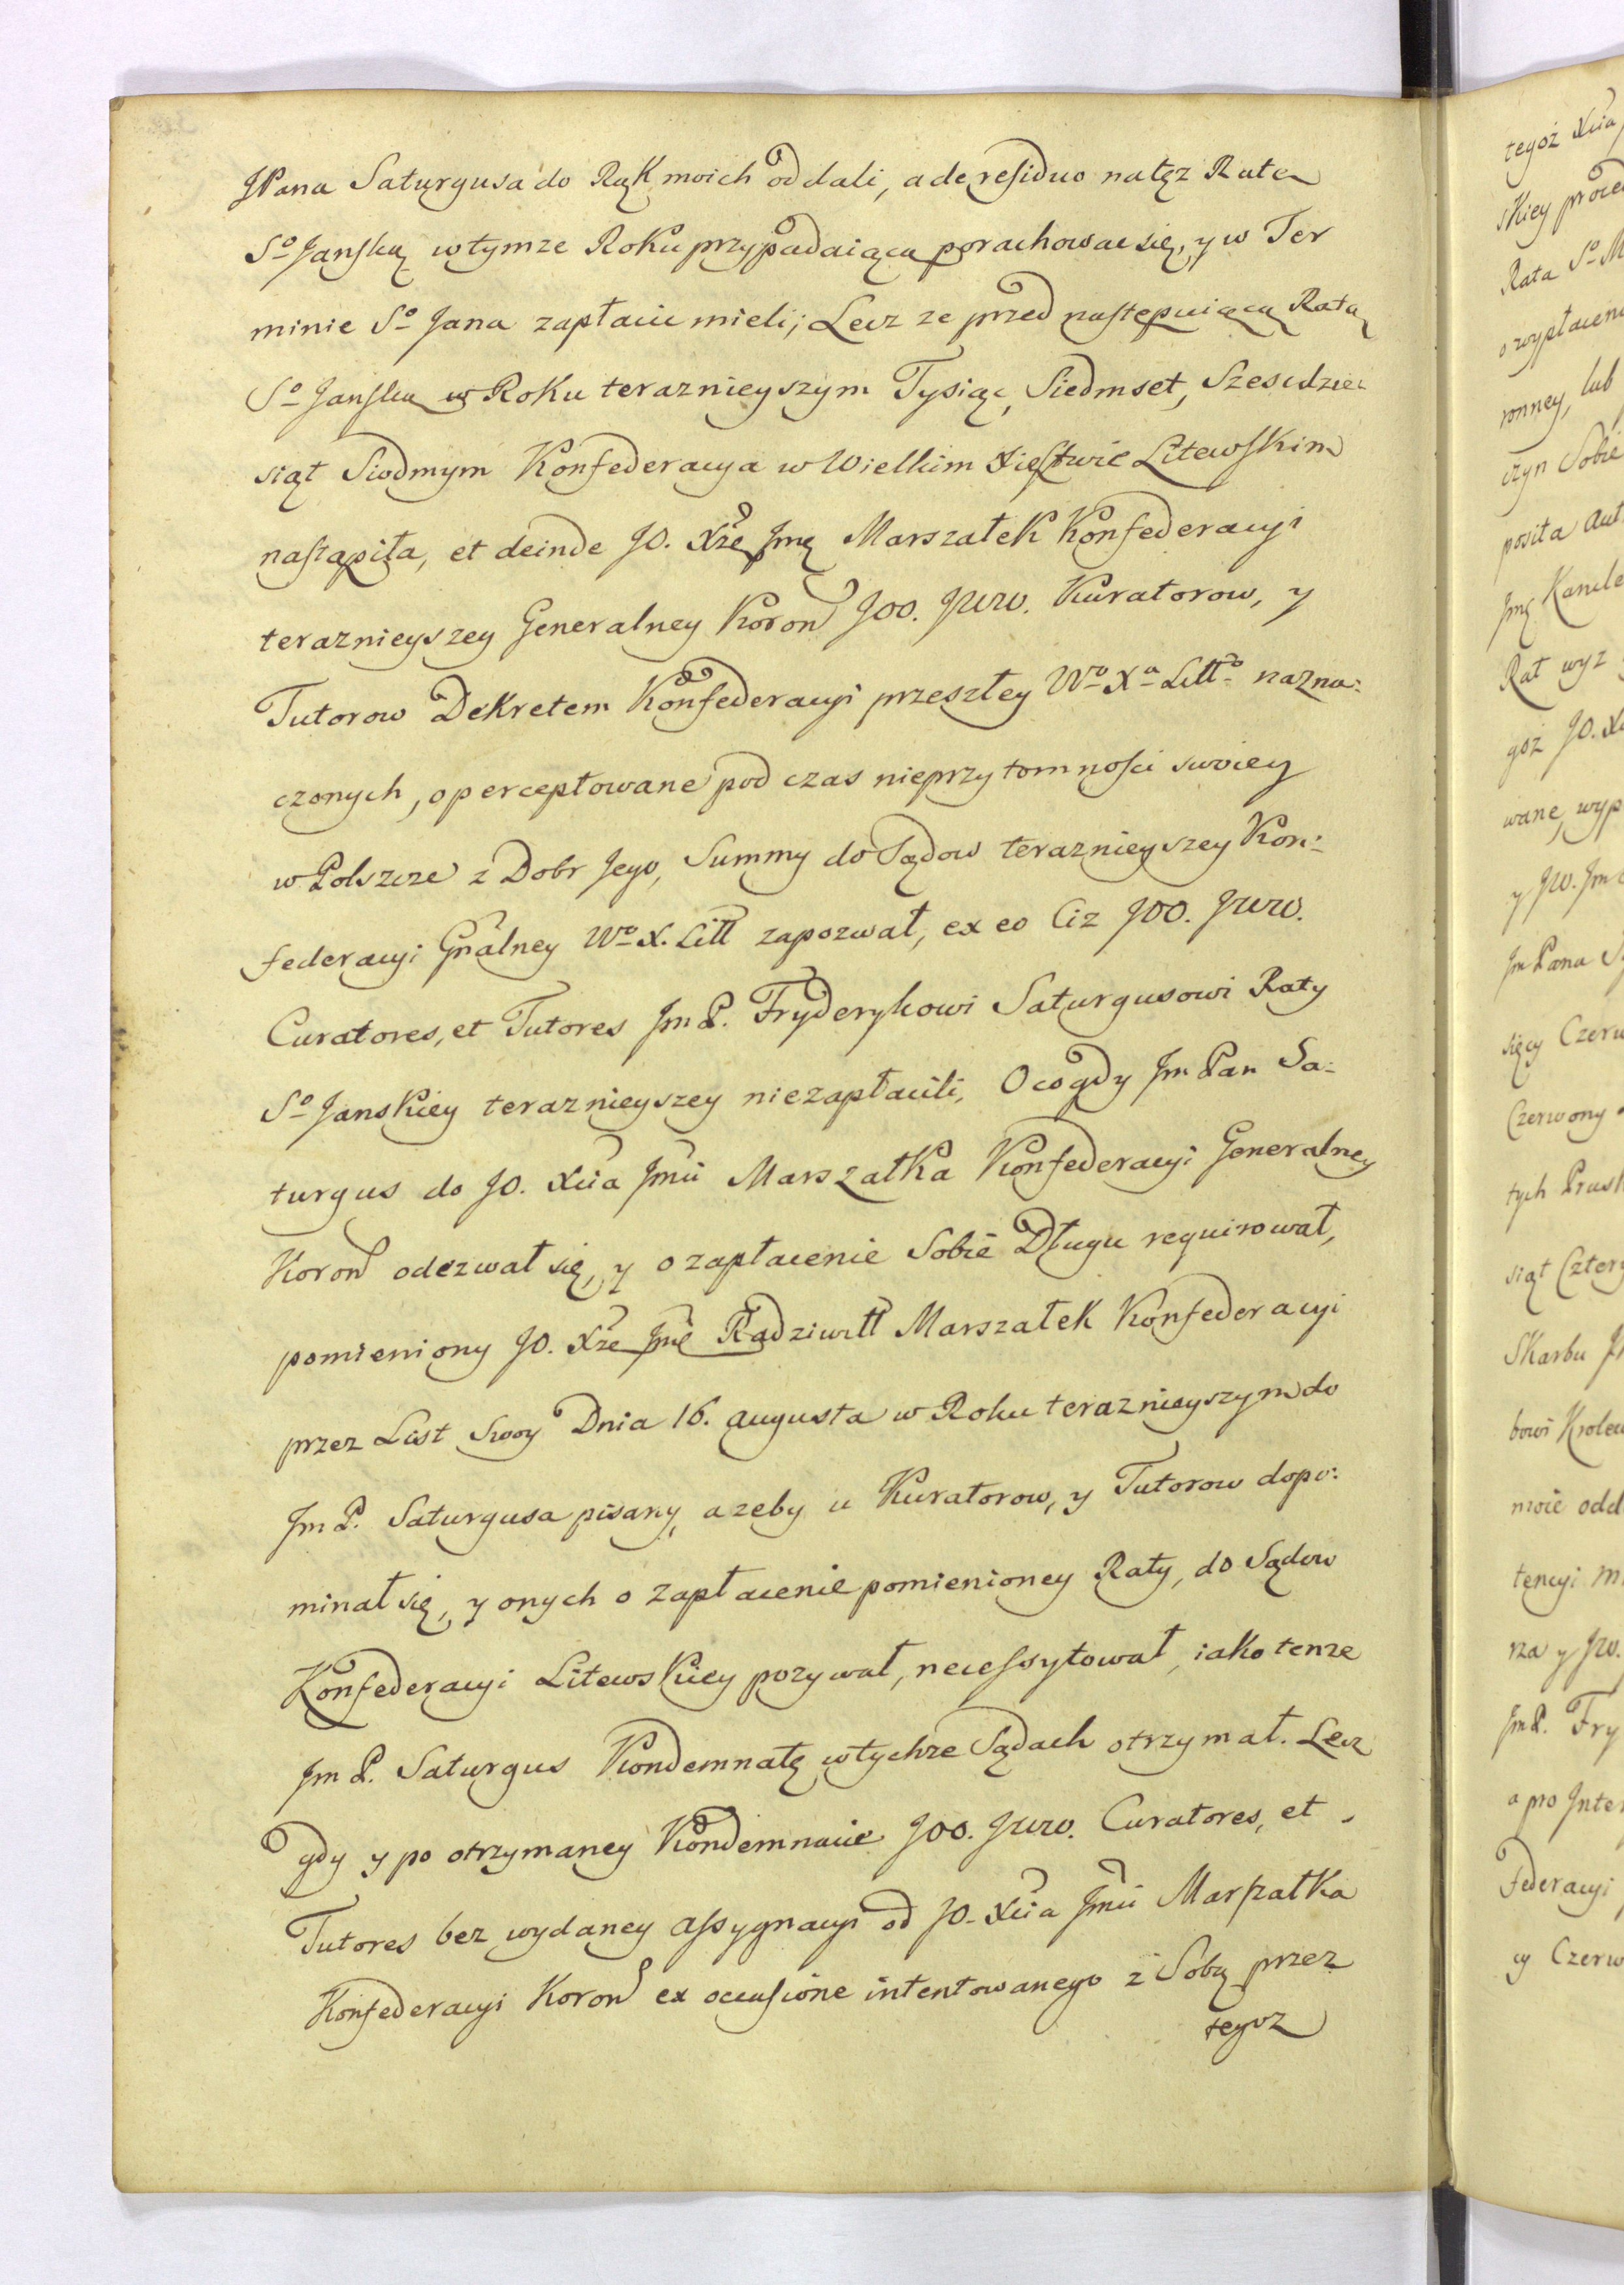 JPana Saturgusa do Rąk moich oddali, a de residuo na tęz Ratę
So Janską w tymze Roku przypadaiącą porachowac się, y w Ter
minie So Jana zapłacic mieli; Lecz ze przed następuiącą Ratą
So Janską w Roku teraznieyszym Tysiąc, Siedmset, Szescdzie
siąt Siodmym Konfederacya w Wielkim Xięstwie Litewskim
nastąpiła, et deinde JO. Xże Jmę Marszałek Konfederacyi
teraznieyszey Generalney Koron JOO. JWW. Kuratorow, y
Tutorow Dekretem Konfederacyi przeszłey Wo Xa Litto nazna:
czonych, o perceptowane pod czas nieprzytomności swoiey
w Polszcze z Dobr Jego, Summy do Sądow teraznieyszey Kon:
federacyi Gnalney Wo X. Litt zapozwał, ex eo Ciz JOO. JWW.
Curatores, et Tutores Jm P. Fryderykowi Saturgusowi Raty
So Janskiey teraznieyszey niezapłacili, O co gdy Jm Pan Sa:
turgus do JO. Xcia Jmci Marszałka Konfederacyi Generalney
Koron odezwał się, y o zapłacenie Sobie Długu requirował,
pomieniony JO. Xże Jmę Radziwiłł Marszałek Konfederacyi
przez List Swoy Dnia 16. Augusta w Roku teraznieyszym do
Jm P. Saturgusa pisany, azeby u Kuratorow, y Tutorow dopo:
minał się, y onych o zapłacenie pomienioney Raty, do Sądow
Konfederacyi Litewskiey pozywał, necessytował, iako tenze
Jm P. Saturgus Kondemnatę w tychze Sądach otrzymał. Lecz
gdy y po otrzymaney Kondemnacie JOO. JWW. Curatores, et
Tutores bez wydaney Assygnacyi od JO. Xcia Jmci Marszałka
Konfederacyi Koron ex occasione intentowanego z Sobą przez
tegoz
tegoż Xcia
skiey
Rata So
o wypłaceni
ronney, lub
czyn Sobie
posita
Jmę
Rat wyz
goż JO.
wane, wyp
y JW. Jm
Jm Pana
sięcy Czerw
Czerwony
tych Prusk
siąt Cztery
Skarbu
bowi Krolew
moie odd
tencyi
rza y JW.
Jm P. Fry
a pro Inter
Federacyi
cy Czerw